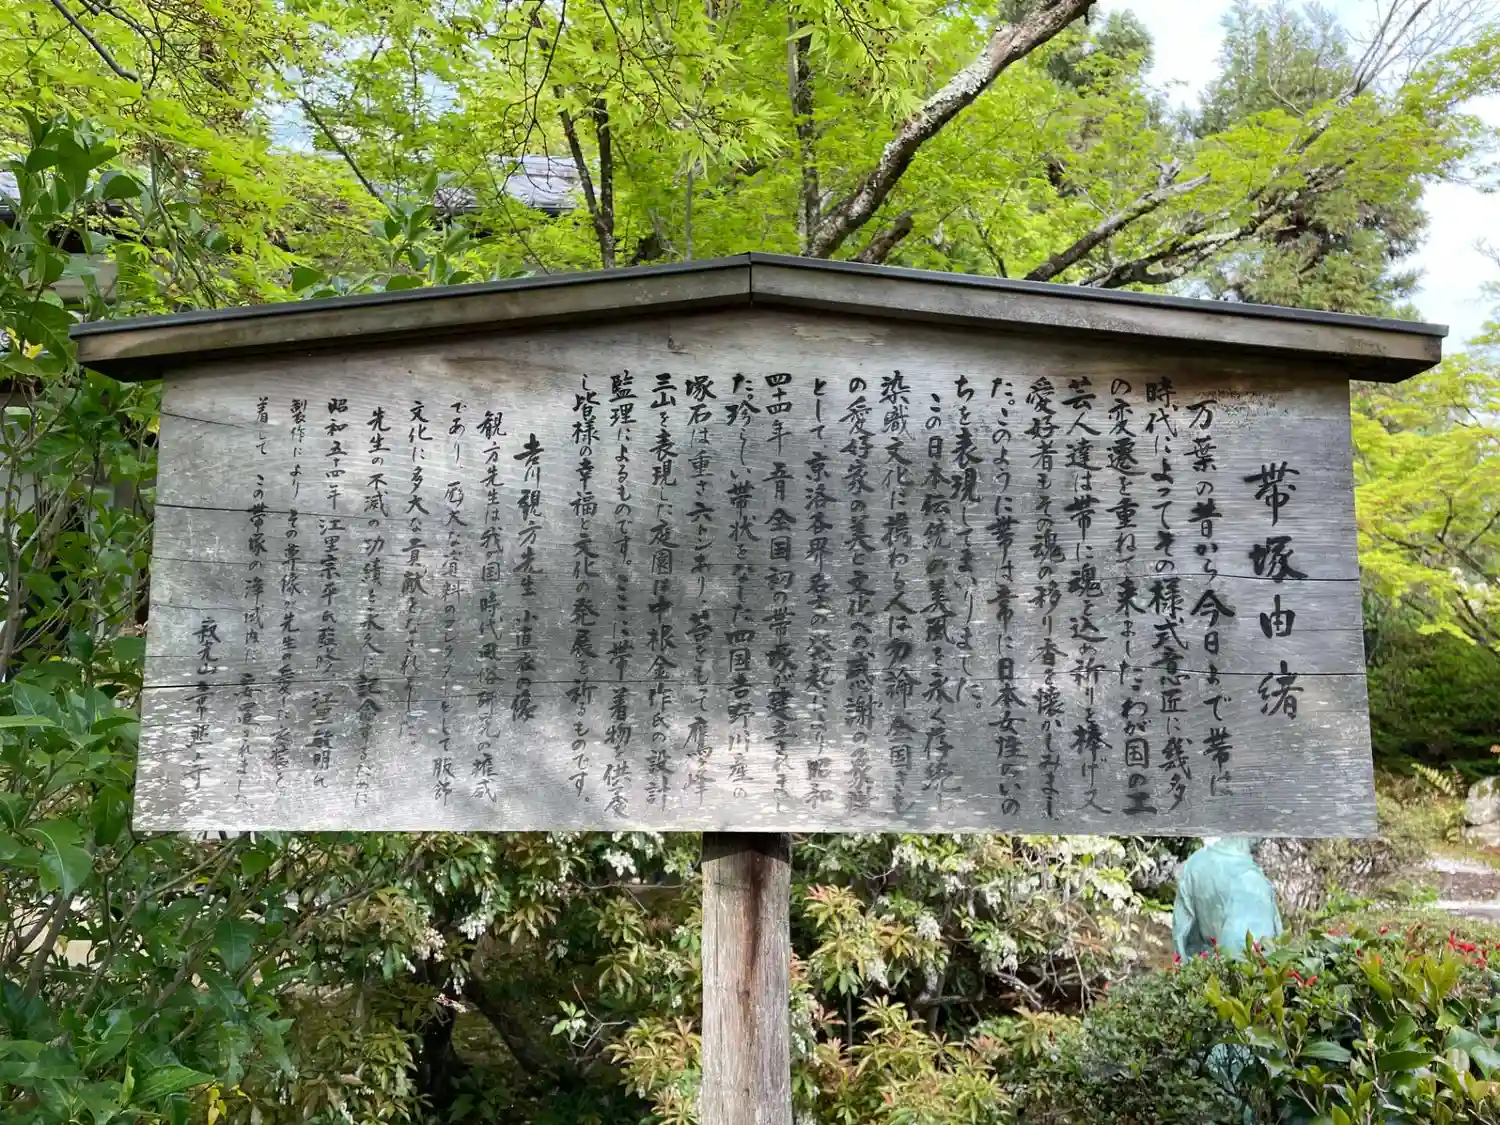 帯塚由緒
万葉の昔から今日まで帯は
時代によってその様式意匠に幾多
の変遷を重ねて来ましたわが国の工
芸人達は帯に魂を込め祈りを捧げ又
愛好者もその魂の移り香を懐かしみまし
た。このように帯は常に日本女性のいの
ちを表現してまいりました。
この日本伝統の美風を永く存続し
染織文化に携わる人は勿論全国きも
の愛好家の美と文化への感謝の象徴
として京洛各界名士の発起により昭和
四十四年五月全国初の帯塚が建立されまし
た。珍らしい帯状をなした四国吉野川産の
塚石は重さ六トンあり、苔をもって鷹ヶ峰
三山を表現した庭園は中根金作氏の設計
監理によるものです。ここに帯、着物を供養
し皆様の幸福と文化の発展を祈るものです。
吉川観方先生 小直衣の像
観方先生は我国時代風俗研究の権威
であり、厖大な資料のコレクターとして服飾
文化に多大な貢献をなされました。
先生の不滅の功績を永久に記念するために
昭和五十四年 江里宗平氏監修、江里敏明氏
製作によりその尊像が先生の愛した衣裳を
着してこの帯塚の浄域内に安置されました。